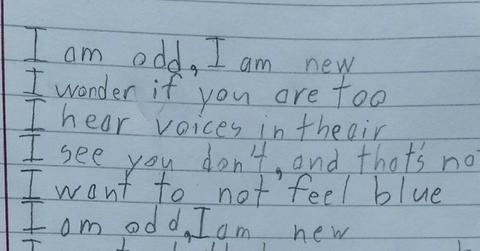 I am odd, I am new
I wonder if you are too
I hear voices in the air
I see you don't, and that's no
I want to not feel blue
I am odd, I am new